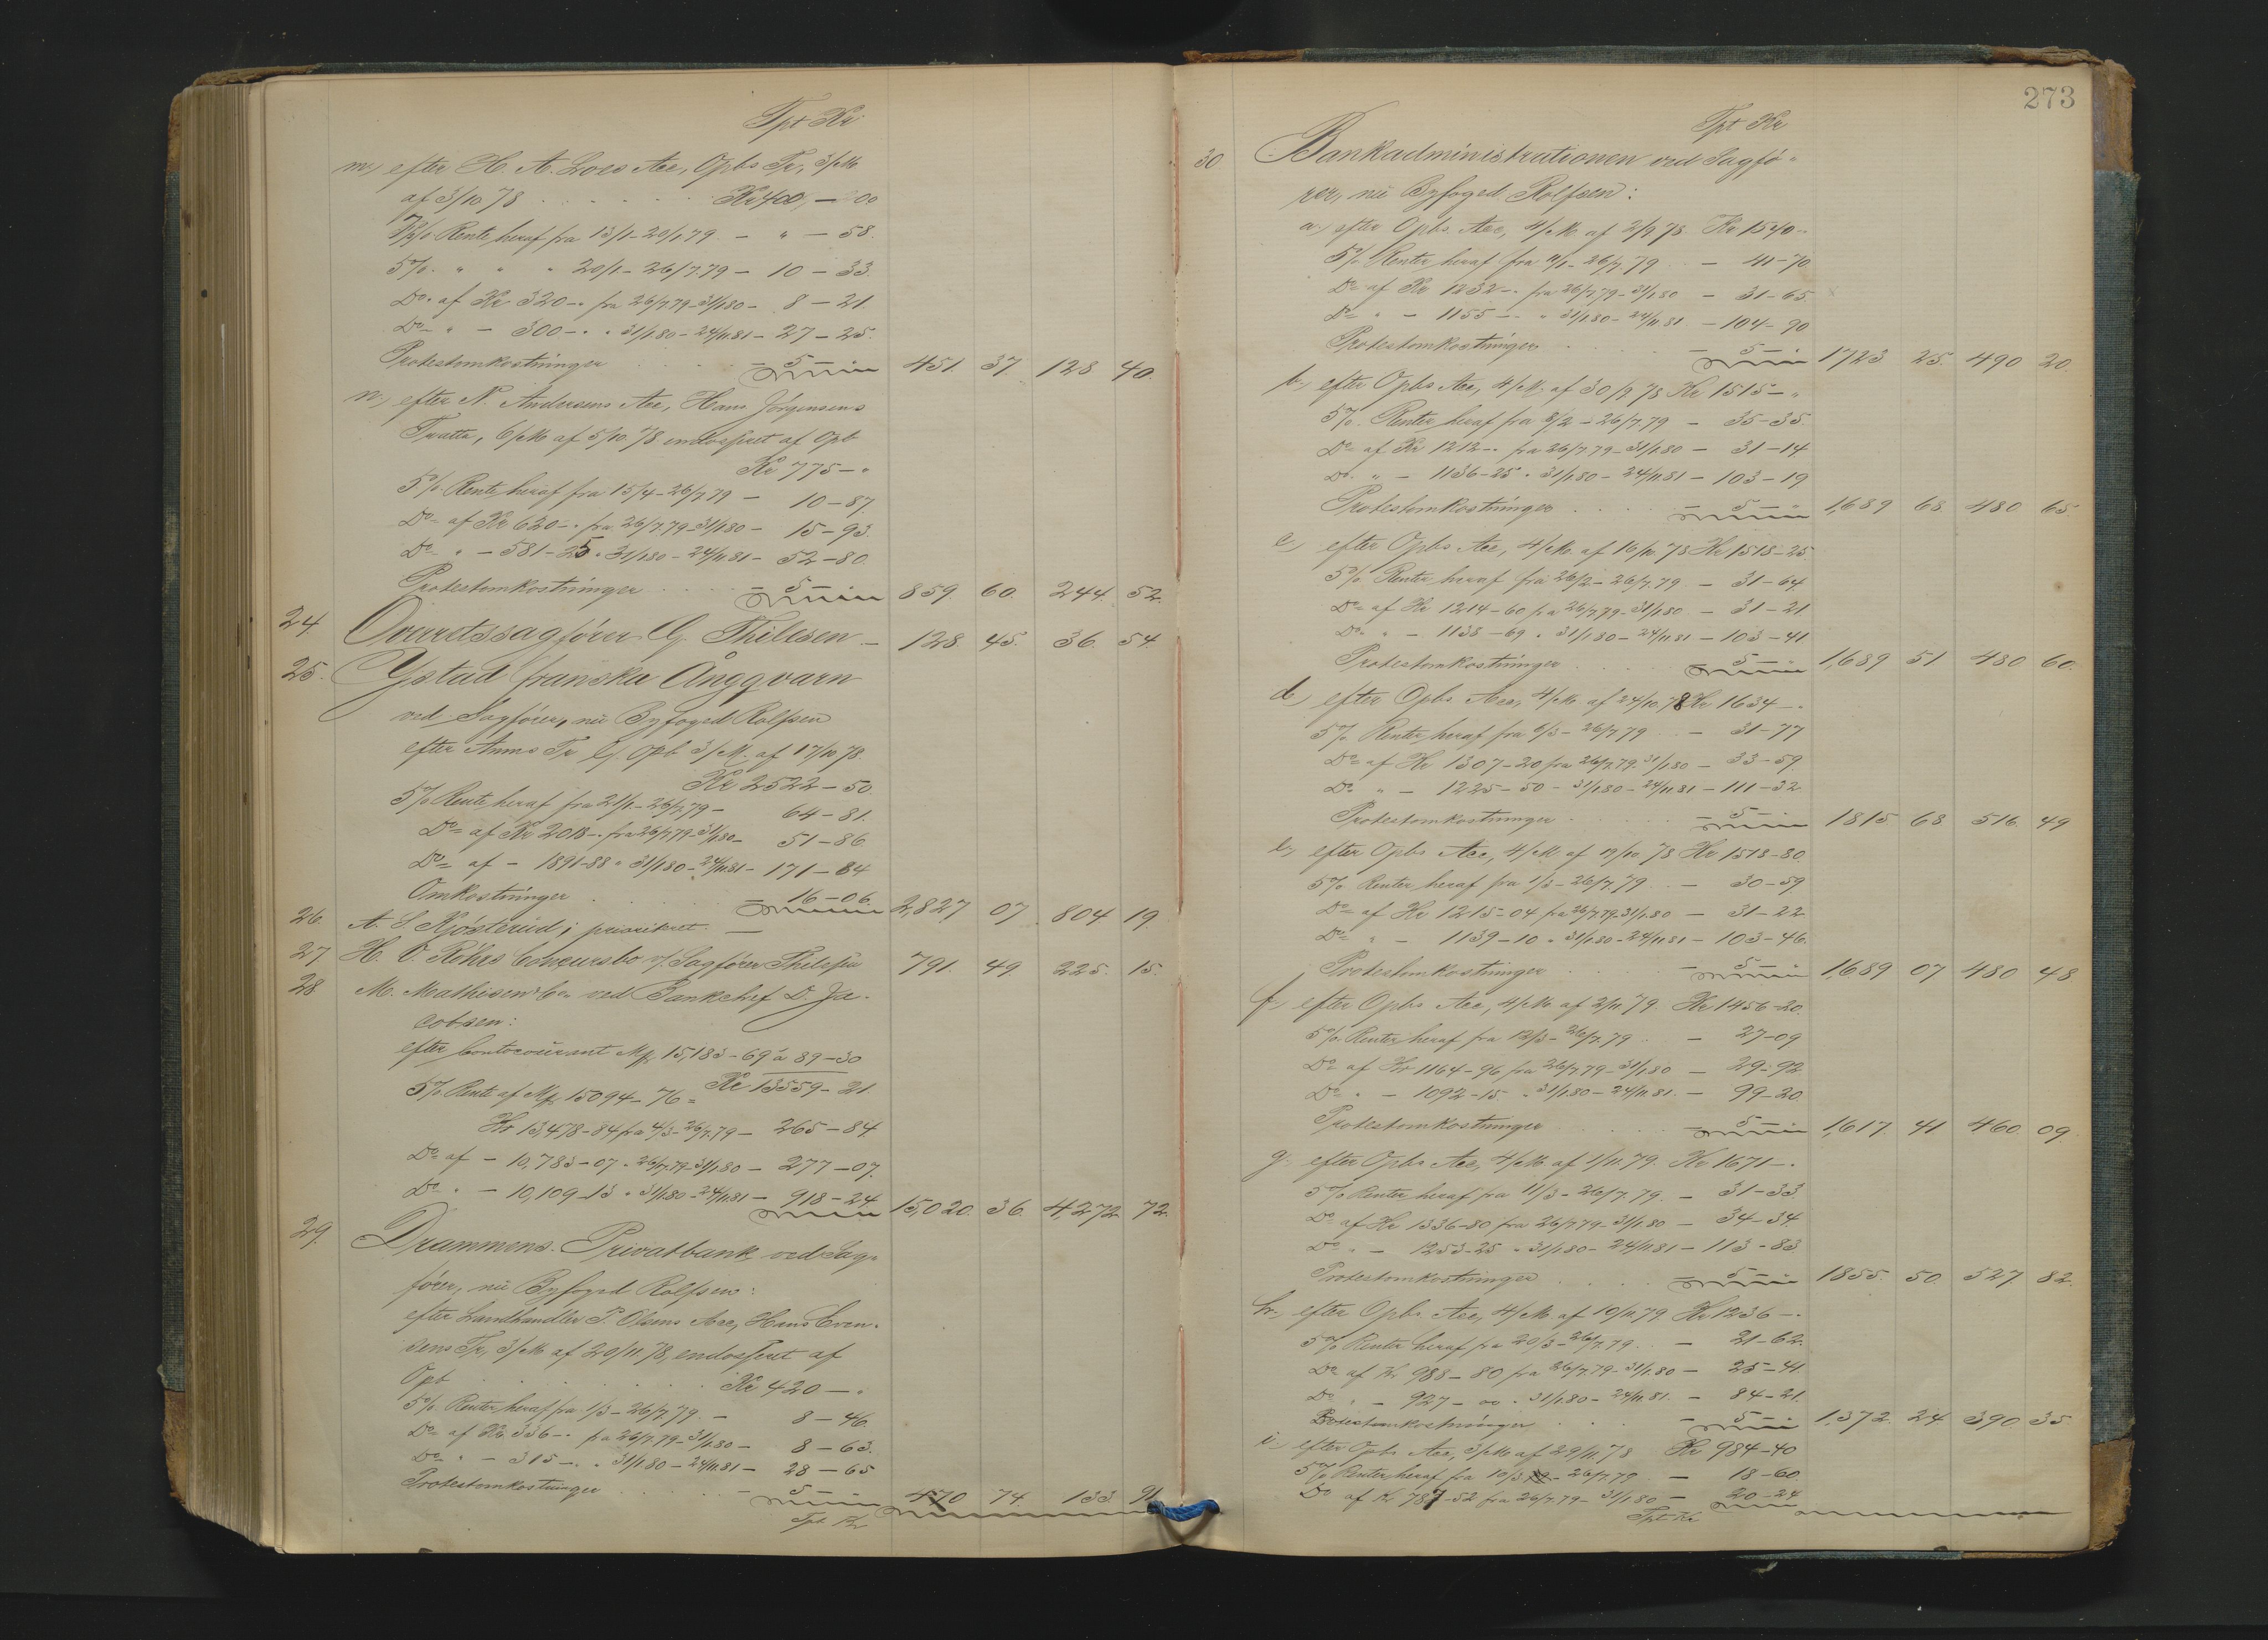 Tpt Kr
m, efter H. A. Loes Acc, Opbs Tr, 3/M
af 3/10 78 . . . . . . Kr 400, — 00
Rente heraf fra 13/1 - 20/1 79 — " — 58.
5% " " " 20/1 - 26/7.79 — 10 — 33.
Do. af Kr 320 -. fra 26/7 79 - 31/1 80 — 8 — 21.
Do - " — 300 -. " 31/1 80 - 24/11 81 — 27 — 25.
Protestomkostninger . . . — 5 — " 451. 37. 128 40.
n, efter N. Andersens Acc, Hans Jörgensens
Tratta, 6/M af 5/10 78 endosseret af Opb
Kr 775 — "
5% Rente heraf fra 15/4 - 26/7 79 — 10 — 87.
Do = af Kr 620 -. fra 26/7 79 - 31/1 80 — 15 — 93.
Do = " — 581 - 25 " 31/1 80 - 24/11 81 — 52 — 80.
Protestomkostninger . . . — 5 — " 859. 60. 244. 52.
24. Overretssagförer G. Thilesen — 128. 45. 36. 54.
25. Ystad franska Ånggvarn
ved Sagförer, nu Byfoged Rolfsen
efter Anms Tr /Opb 3/M. af 17/10 78.
Kr 2522 — 50.
5% Rente heraf fra 21/1 - 26/7 79 — 64 — 81.
Do = af Kr 2018 -. fra 26/7 79 - 31/1 80 — 51 — 86.
Do = af — 1891-88 " 31/1 80 - 24/11 81 — 171 — 84
Omkostninger . . . — 16 — 06. 2,827. 07. 804 19.
26. A. S. Kjösterud; prioriteret. —
27 H. O. Röhrs Concursbo v/ Sagförer Thilesen 791. 49. 225. 15.
28 M. Mathisen & Co. ved Bankchef D. Ja-
cobsen:
efter Contocourant Mk 15,183 - 69 á 89 — 30
Kr 13559 — 21.
5% Rente af Mk 15094 - 76 =
Kr 13,478 - 84 fra 4/3 - 26/7.79 — 265 — 84.
Do = af — 10,783 - 07 " 26/7.79 - 31/1 80 — 277 — 07.
Do " — 10,109 - 13 " 31/1 80 - 24/11 81 — 918 — 24. 15,020. 36. 4,272. 72.
29. Drammens Privatbank ved Sag-
förer, nu Byfoged Rolfsen:
efter Landhandler P. Olsens Acc, Hans Even-
sens Tr, 3/M af 20/11 78, endosseret af
Opb . . . . . . Kr 420 — "
5% Renter heraf fra 1/3 - 26/7.79. — 8 — 46.
Do = af Kr. 336 -. fra 26/7.79 - 31/1 80 — 8 — 63.
Do = " — 315 -. " 31/1 80 - 24/11 81 — 28 — 65
Protestomkostninger . . . — 5 — " 470 74. 133. 91.
Tpt Kr
273
Tpt Kr
30. Bankadministrationen ved Sagfö-
rer, nu Byfoged Rolfsen:
a, efter Opbs Acc, 4/M. af 2/9 78 Kr 1540 "
5% Renter heraf fra - 26/7.79 — 41 - 70
Do = af Kr 1232 -. fra 26/7 79 - 31/1 80 — 31 - 65
Do = " — 1155 -. " 31/1 80 - 24/11 81 — 104 - 90
Protestomkostninger . . . — 5 — " 1723 25. 490 20.
b, efter Opbs Acc, 4/M. af 30/9 78 Kr 1515 — "
5% Renter heraf fra 8/2 - 26/7.79 — 35 - 35.
Do = af Kr 1212 -. fra 26/7.79 - 31/1 80 — 31 - 14.
Do. " — 1136 - 25 " 31/1 80 - 24/11 81 — 103 - 19
Protestomkostninger . . . — 5 — " 1,689 68. 480 65.
c, efter Opbs Acc, 4/M. af 16/10 78 Kr 1518 - 25
5% Renter heraf fra 26/2 - 26/7.79 — 31 - 64.
Do = af Kr 1214 - 60 fra 26/7.79 - 31/1 80 — 31 - 21
Do " — 1138 - 69 " 31/1 80 - 24/11 81 — 103 - 41
Protestomkostninger . . . — 5 — " 1,689 51 480 60.
d, efter Opbs Acc, 4/M. af 24/10 78 Kr 1634 —.
5% Renter heraf fra 6/3 - 26/7 79 — 31 - 77
Do = af Kr 1307 - 20 fra 26/7.79 - 31/1 80 — 33 - 59.
Do " — 1225 - 50 - 31/1 80 - 24/11 81 — 111 - 32
Protestomkostninger . . . — 5 — " 1815 68 516 49
e, efter Opbs Acc, 4/M af 19/10 78 Kr 1518 - 80.
5% Renter heraf fra 1/3 - 26/7.79 — 30 - 59
Do = af Kr 1215 - 04 fra 26/7.79 - 31/1 80 — 31 - 22
Do = " — 1139 - 10 " 31/1 80 - 24/11 81 — 103 - 46.
Protestomkostninger . . . — 5 — " 1,689 07 480 48
f, efter Opbs Acc, 4/M. af 2/11 79. Kr 1456 - 20.
5% Renter heraf fra 12/3 - 26/7.79 — 27 - 09
Do = af Kr 1164 - 96 fra 26/7 79 - 31/1 80 — 29 - 92
Do = " — 1092 - 15 " 31/1 80 - 24/11 81. — 99 - 20.
Protestomkostninger . . . — 5 — " 1,617. 41 460 09
g. efter Opbs Acc, 4/M. af 1/11. 79. Kr 1671 —.
5% Renter heraf fra 11/3 - 26/7.79. — 31 - 33.
Do = af Kr 1336 - 80 fra 26/7 79 - 31/1 80 — 34 - 34
Do = " — 1253 - 25 " 31/1 80 - 24/11 81 — 113 - 83
Protestomkostninger . . . — 5 — " 1855. 50. 527 82.
h, efter Opbs Acc, 4/M. af 10/11 79 Kr 1236 —.
5% Renter heraf fra 20/3 - 26/7.79. — 21 - 62.
Do af Kr 988 - 80 fra 26/7.79 - 31/1 80 — 25 - 41.
Do " — 927 - 00 " 31/1 80 - 24/11 81. — 84 - 21.
Protestomkostninger . . . — 5 — " 1,372. 24 390 35
i, efter Opbs Acc, 3/M. af 29/11. 78 Kr 984 - 40
5% Renter heraf fra 10/3 - 26/7 79 — 18 - 60.
Do af Kr 787 - 52 fra 26/7.79 - 31/1 80 — 20 - 24
Tpt Kr